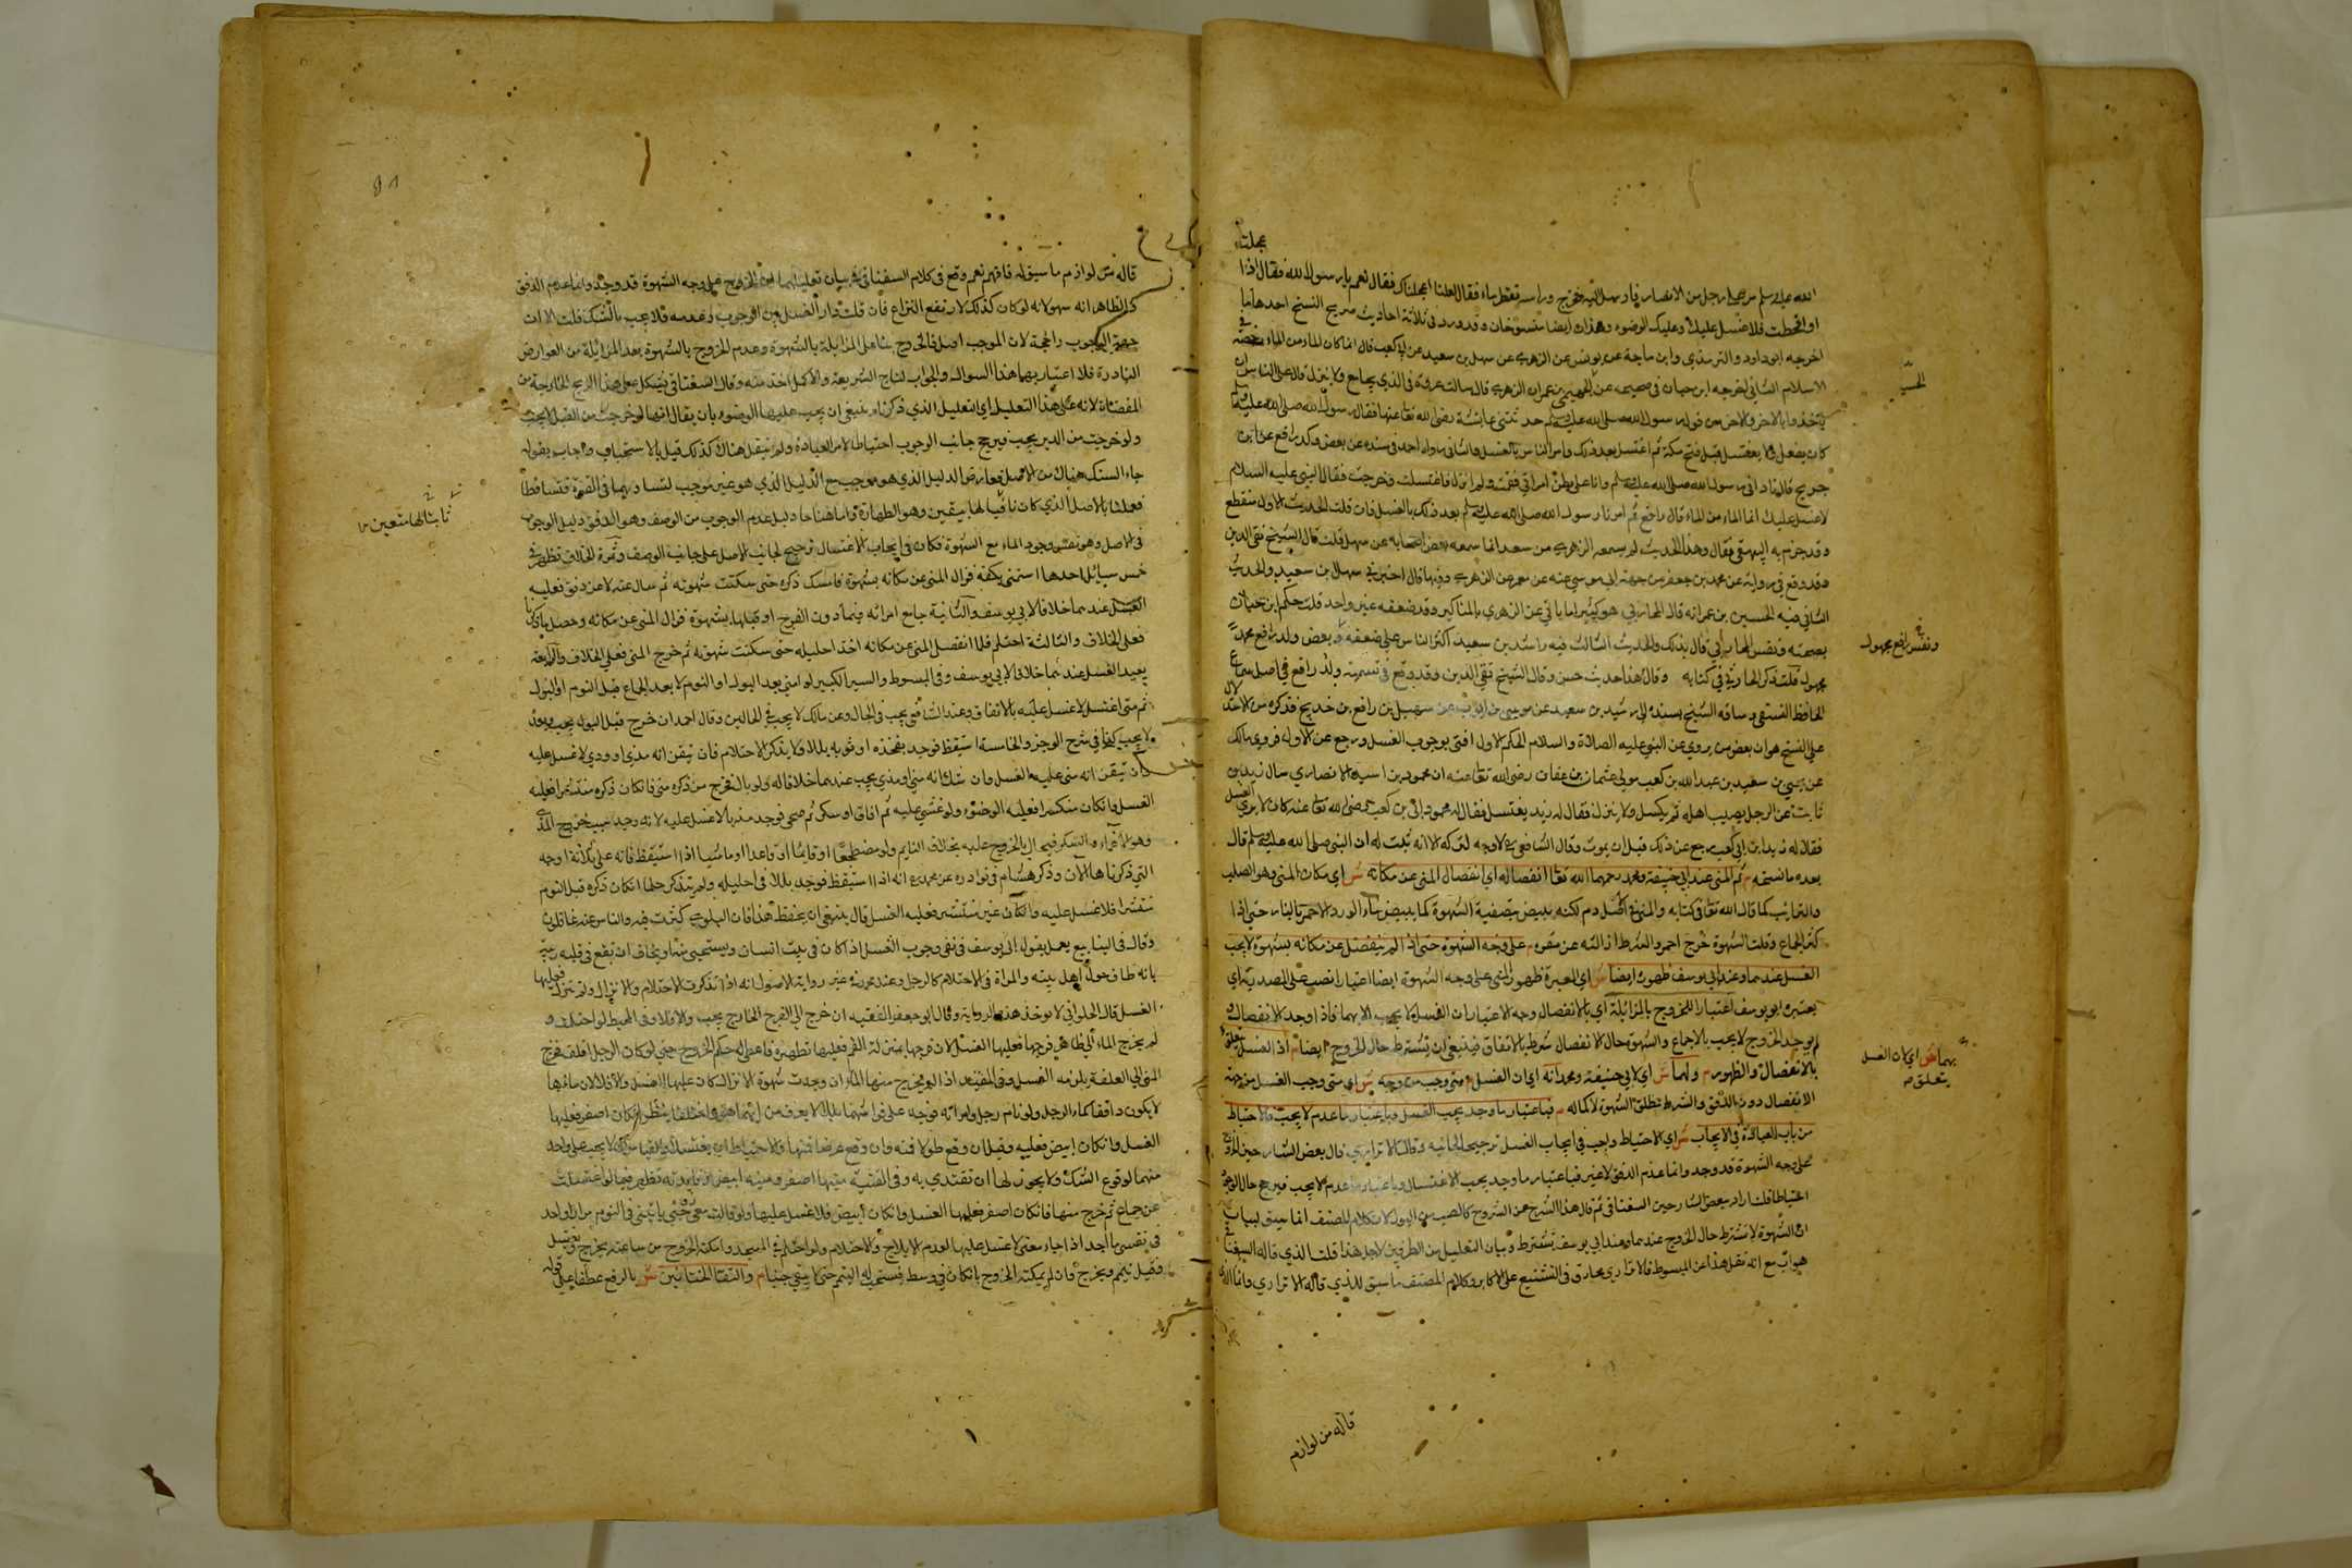 عجلت
الله عليه وسلم مر على رجل من الانصار فارسل اليه فخرج وراسه يقطر ماء فقال لعلنا اعجلناك فقال نعم يا رسول الله فقال اذا
او اقحطت فلا غسل عليك وعليك الوضوء وهذان ايضا منسوخان وقد ورد في ثلاثة احاديث صريح النسخ احدها ما
اخرجه ابو داود والترمذي وابن ماجة عن يونس عن الزهري عن سهل بن سعيد عن ابي كعب قال انما كان الماء من الماء رخصة في
الاسلام الثاني اخرجه ابن حبان في صحيحه عن الحسين بن عمران الزهري قال سالت عروة في الذي يجامع ولا ينزل قال على الناس ان
ياخذوا بالاخر فالاخر من قول رسول الله صلى الله عليه وسلم حدثتني عائشة رضي الله تعالى عنها فقال رسول الله صلى الله عليه وسلم
كان يفعل ولا يغتسل قبل فتح مكة ثم اغتسل بعد ذلك وامر الناس بالغسل والثاني رواه احمد في مسنده عن بعض ولد رافع عن ابن
خديج قال نادانى رسول الله صلى الله عليه وسلم وانا على بطن امراتي فقمت ولم انزل فاغتسلت وخرجت فقال النبي عليه السلام
لا غسل عليك انما الماء من الماء قال رافع ثم امرنا رسول الله صلى الله عليه وسلم بعد ذلك بالغسل فان قلت الحديث الاول منقطع
وقد جزم به البيهقي فقال وهذا الحديث لم يسمعه الزهري من سعد انما سمعه بعض اصحابه عن سهل قلت قال الشيخ تقي الدين
وقد وقع في رواية عن محمد بن جعفر من جهة ابي موسى عنه عن معمر عن الزهري وفيها قال اخبرني سهل بن سعيد والحديث
الثاني فيه الحسين بن عمرانه قال الحازمي هو كثيرا ما ياتي عن الزهري بالمناكير وقد ضعفه غير واحد قلت حكم ابن حبان
بصحته ونفس الحازمي قال بذلك والحديث الثالث فيه راشد بن سعيد اكثر الناس على ضعفه وبعض ولد رافع
مجهول قلت ذكر الحازمي في كتابه وقال هذا حديث حسن وقال الشيخ تقي الدين وقد وقع في تسميته ولد رافع في اصل سماع
الحافظ السلفي وساقه الشيخ بسنده الى رشيد بن سعيد عن موسى بن ايوب عن سهيل بن رافع بن خديج فذكره
على النسخ هو ان بعض من روي عن النبي عليه الصلاة والسلام الحكم الاول افتى بوجوب الغسل ورجع عن الاول فروى مالك
عن يحيى بن سعيد بن عبد الله بن كعب مولى عثمان بن عفان رضي الله تعالى عنه ان محمود بن اسيد الانصاري سال زيد بن
ثابت عن الرجل يصيب اهله ثم يكسل ولا ينزل فقال له زيد يغتسل فقال له محمود ابي بن كعب رضي الله تعالى عنه كان لا يرى الغسل
فقال له زيد ان ابي كعب رجع عن ذلك قبل ان يموت وقال الشافعي لا وجه لتركه الا انه ثبت له ان النبي صلى الله عليه وسلم قال
بعده ما نسخه م ثم المني عند ابي حنيفة ومحمد رحمهما الله تعالى انفصاله اي انفصال المني عن مكانه ش اي مكان المني وهو الصلب
والترائب كما قال الله تعالى في كتابه والمني في اكسل دم لكنه يبيض بتصفية الشهوة كما يبيض ماء الورد الاحمر بالنار حتى اذا
كثر الجماع وقلت الشهوة خرج احمر والشرط ازالته عن مقره م على وجه الشهوة حتى اذا لم ينفصل عن مكانه بشهوة لا يجب
الغسل عندهما وعند ابي يوسف ظهوره ايضا ش اي المعبرة ظهور المني على وجه الشهوة ايضا اعتبارا نصب على المصدرية اي
يعتبره ابو يوسف اعتبارا للخروج بالمزايلة اي بالانفصال وجه الاعتبار ان الغسل لا يجب الا بهما فاذا وجد الانفصال و
لم يوجد الخروج لا يجب بالاجماع والشهوة حال الانفصال شرط بالاتفاق فينبغي ان تشترط حال الخروج ايضا م اذ الغسل يتعلق
بالانفصال والظهور م ولهما ش اي لابي حنيفة ومحمد انه اي ان الغسل م متى وجب من وجه ش اي متى وجب الغسل من جهة
الانفصال دون الدفق والشرط تطلق الشهوة لا كماله م فباعتبار ما وجد يجب الغسل وباعتبار ما عدم لا يجب فالاحتياط
من باب العبادة في الايجاب ش اي الاحتياط واجب في ايجاب الغسل ترجيحا لجانبه وقال الاترازي قال بعض الشارحين الخروج
على وجه الشهوة قد وجد وانما عدم الدفق لا غير فباعتبار ما وجد يجب الاغتسال وباعتبار ما عدم لا يجب فيرجح جال الوجوب
احتياطا قلت اراد ببعض الشارحين السغناقي ثم قال هذا الشرح من الشروح كالصبيب من البول لان كلام المصنف انما سيق لبيان
ان الشهوة لا تشترط حال الخروج عندهما وعند ابي يوسف تشترط وبيان التعليل من الطرفين لاجل هذا قلت الذي قاله السغناقي
هو اب مع انه نقل هذا عن المبسوط فالاترازي يحارق في التشنيع على الاكابر وكلام المصنف ما سيق للذي قاله الاترازي وانما الذي
قاله من لوازم
الحسين
ونفس رافع مجهول
بهما ش اي لان الغسل
يتعلق
قاله من لوازم ما سيق له فافهم نعم وقع في كلام السغناقي في بيان تعليلهما ان الخروج على وجه الشهوة قد وجد وانما عدم الدفق
كر الظاهر انه سهو لانه لو كان كذلك لارتفع النزاع فان قلت دار الغسل بين الوجوب وعدمه فلا يجب بالشك قلت الا ان
جهة الوجوب راجحة لان الموجب اصل فالخروج بناء على المزايلة بالشهوة وعدم الخروج بالشهوة بعد المزايلة من العوارض
النادرة فلا اعتبار بهما هذا السوال والجواب لتاج الشريعة والاكمل اخذ منه وقال السغناقي يشكل على هذا الريح الخارجة من
المفضاة لانه على هذا التعليل اي التعليل الذي ذكرناه ينبغي ان يجب عليها الوضوء بان يقال انها لو خرجت من القبل لا يجب
ولو خرجت من الدبر يجب فيرجح جانب الوجوب احتياطا لامر العبادة ولم ينقل هناك كذلك قيل بالاستحباب واجاب بقوله
جاء الشك هناك من الاصل فعارض الدليل الذي هو موجب مع الدليل الذي هو غير موجب لتساويهما في القوة فتساقطا
فعملنا بالاصل الذي كان ثابتا لها بيقين وهو الطهارة واما هنا جاء دليل عدم الوجوب من الوصف وهو الدفق دليل الوجوب
في الاصل وهو نفس وجود الماء مع الشهوة فكان في ايجاب الاغتسال ترجيح لجانب الاصل على جانب الوصف وثمرة الخلاف تظهر في
خمس مسائل احدها استمنى بكفه فزال المني عن مكانه بشهوة فامسك ذكره حتى سكنت شهوته ثم سال عنه لا عن دفق فعليه
الغسل عندهما خلافا لابي يوسف والثانية جامع امراته فيما دون الفرج او قبلها بشهوة فزال المني عن مكانه وحصل ما ذكرنا
فعلى الخلاف والثالثة احتلم فلما انفصل المني عن مكانه اخذ احليله حتى سكنت شهوته ثم خرج المني فعلى الخلاف والرابعة
يعيد الغسل عندهما خلافا لابي يوسف وفي المبسوط والسير الكبير لو امنى بعد البول او النوم لا يعد الجماع قبل النوم او البول
ثم متى اغتسل لا غسل عليه بالاتفاق وعند الشافعي يجب في الحال وعن مالك لا يجب في الحالين وقال احمد ان خرج قبل البول يجب وبعد
لا يجب كذا في شرح الوجيز والخامسة استيقظ فوجد بفخذه او ثوبه بللا ولا يذكر الاحتلام فان تيقن انه مذي او ودي لا غسل عليه
وان تيقن انه مني عليه الغسل وان شك انه مني او مذي يجب عندهما خلافا له ولو بال فخرج من ذكره مني فان كان ذكره منتشرا فعليه
الغسل وان كان منكسرا فعليه الوضوء ولو غشي عليه ثم افاق او سكر ثم صحى فوجد مذيا لا غسل عليه لانه وجد سبب خروج المذي
وهو الاغماء والسكر فيحال بالخروج عليه بخلاف النايم ولو مضطجعا او قايما او قاعدا او ماشيا اذا استيقظ فانه على ثلاثة اوجه
التي ذكرناها الان وذكر هشام في نوادره عن محمد انه اذا استيقظ فوجد بللا في احليله ولم يتذكر حلما ان كان ذكره قبل النوم
منتشرا فلا غسل عليه وان كان غير منتشر فعليه الغسل قال ينبغي ان يحفظ هذا فان البلوى كثرت فيه والناس عنه غافلون
وقال في الينابيع يعمل بقول ابي يوسف في نفي وجوب الغسل اذا كان في بيت انسان ويستحيي منه او يخاف ان يقع في قلبه ريبة
بانه طاف حول اهل بيته والمراة في الاحتلام كالرجل وعند محمد في غير رواية الاصول انه اذا تذكرت الاحتلام والانزال ولم تنزل فعليها
الغسل قال الحلواني لا يوخذ هذه الرواية وقال ابو جعفر الفقيه ان خرج الى الفرج الخارج يجب والا فلا وفي المحيط لو احتلمت و
لم يخرج الماء الى ظاهر فرجها فعليها الغسل لان فرجها بمنزلة الفم فعليها تطهيره فاعطى له حكم الخروج حتى لو كان الرجل اقلف فخرج
المني الى القلفة يلزمه الغسل وفي المفيد اذا لم يخرج منها الماء ان وجدت شهوة الانزال كان عليها الغسل والا فلا لان ماءها
لا يكون دافقا كماء الرجل ولو نام رجل وامراته فوجد على فراشهما بللا لا يعرف من ايهما هو واختلفا ينظر ان كان اصفر فعليها
الغسل وان كان ابيض فعليه وقيل ان وقع طولا فمنه وان وقع عرضا فمنها والاحتياط ان يغتسلا والقياس ان لا يجب على واحد
منهما لوقوع الشك ولا يجوز لها ان تقتدي به وفي القنية منيها اصفر ومنيه ابيض وفايدته تظهر فيما لو اغتسلت
عن جماع ثم خرج منها فان كان اصفر فعليها الغسل وان كان ابيض فلا غسل عليها ولو قالت معي جني ياتيني في النوم مرارا واجد
في نفسي ما اجد اذا جامعني لا غسل عليها لعدم الايلاج والاحتلام ولو احتلم في المسجد وامكنه الخروج من ساعته يخرج ويغتسل
وقيل يتيمم ويخرج وان لم يمكنه الخروج بان كان في وسط يستحب له التيمم حتى لا يبقى جنبا م والتقاء الختانين ش بالرفع عطفا على قوله